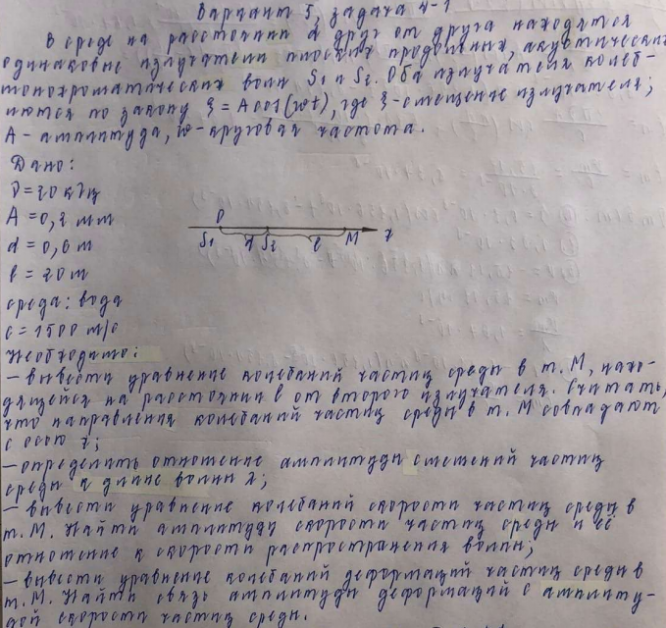 Вариант 5, задача 4-1
В среде на расстоянии d друг от друга находятся
одинаковые излучатели плоских продольных, акустических
монохроматических волн S₁ и S₂. Оба излучателя колеб-
лются по закону ξ = A cos(ωt), где ξ - смещение излучателя;
A - амплитуда, ω - круговая частота.
Дано:
ν = 20 кГц
A = 0,2 мм
d = 0,6 м
ℓ = 20 м
среда: вода
c = 1500 м/с
S₁ d S₂ ℓ M
Необходимо:
- вывести уравнение колебаний частиц среды в т. M, нахо-
дящейся на расстоянии ℓ от второго излучателя. Считать,
что направления колебаний частиц среды в т. M совпадают
с осью
- определить отношение амплитуды смещений частиц
среды к длине волны λ;
- вывести уравнение колебаний скорости частиц среды в
т. M. Найти амплитуду скорости частиц среды и её
отношение к скорости распространения волны;
- вывести уравнение колебаний деформаций частиц среды в
т. M. Найти связь амплитуды деформаций с амплиту-
дой скорости частиц среды.